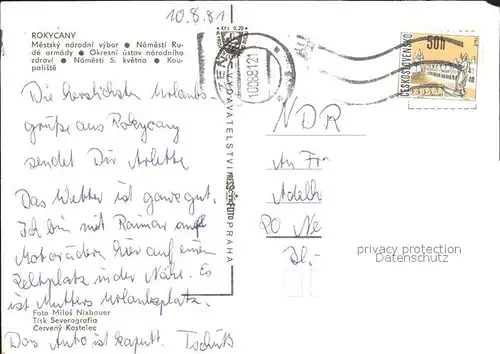 10.8.81
ROKYCANY
Městský národní výbor ● Náměstí Ru-
dé armády ● Okresní ústav národního
zdraví ● Náměstí 5. května ● Kou-
paliště
Die herzlichsten Urlaubs-
grüße aus Rokycany
sendet Dir Arlette
Das Wetter ist ganz gut.
Ich bin mit Raimar auf
Motorädern hier auf einem
Zeltplatz in der Nähe. Es
ist Mutters Urlaubsplatz.
Das Auto ist kaputt. Tschüß
Foto Miloš Nixbauer
Tisk Severografia
Červený Kostelec
VYDAVATELSTVÍ PRESSFOTO PRAHA
ČESKOSLOVENSKO
50h
NDR
An Fr
Adelh
20 Ne
privacy protection
Datenschutz